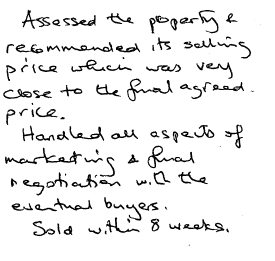 Assessed the property &
recommended its selling
price which was very
close to the final agreed.
price.
Handled all aspects of
marketing & final
negotiation with the
eventual buyers.
Sold within 8 weeks.